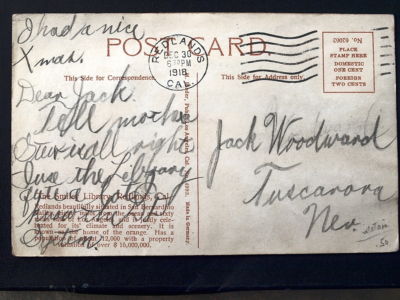 I had a nice
Xmas.
POST CARD.
REDLANDS
DEC 30
6 PM
1918
CAL.
No. 62062
PLACE
STAMP HERE
DOMESTIC
ONE CENT
FOREIGN
TWO CENTS
This Side for Correspondence.
This Side for Address only.
Dear Jack.
Tell mother
I am well
Use the Library
quite a lot
Jack Woodward
Tuscarora
Nev.
The Smiley Library, Redlands, Cal.
Redlands beautifully situated in San Bernardino
sixty
miles Los Angeles and is
brated for its' climate and scenery. It is
known as the home of the orange. Has a
population of about 12,000 with a property
valuation of over $ 10,000,000.
50